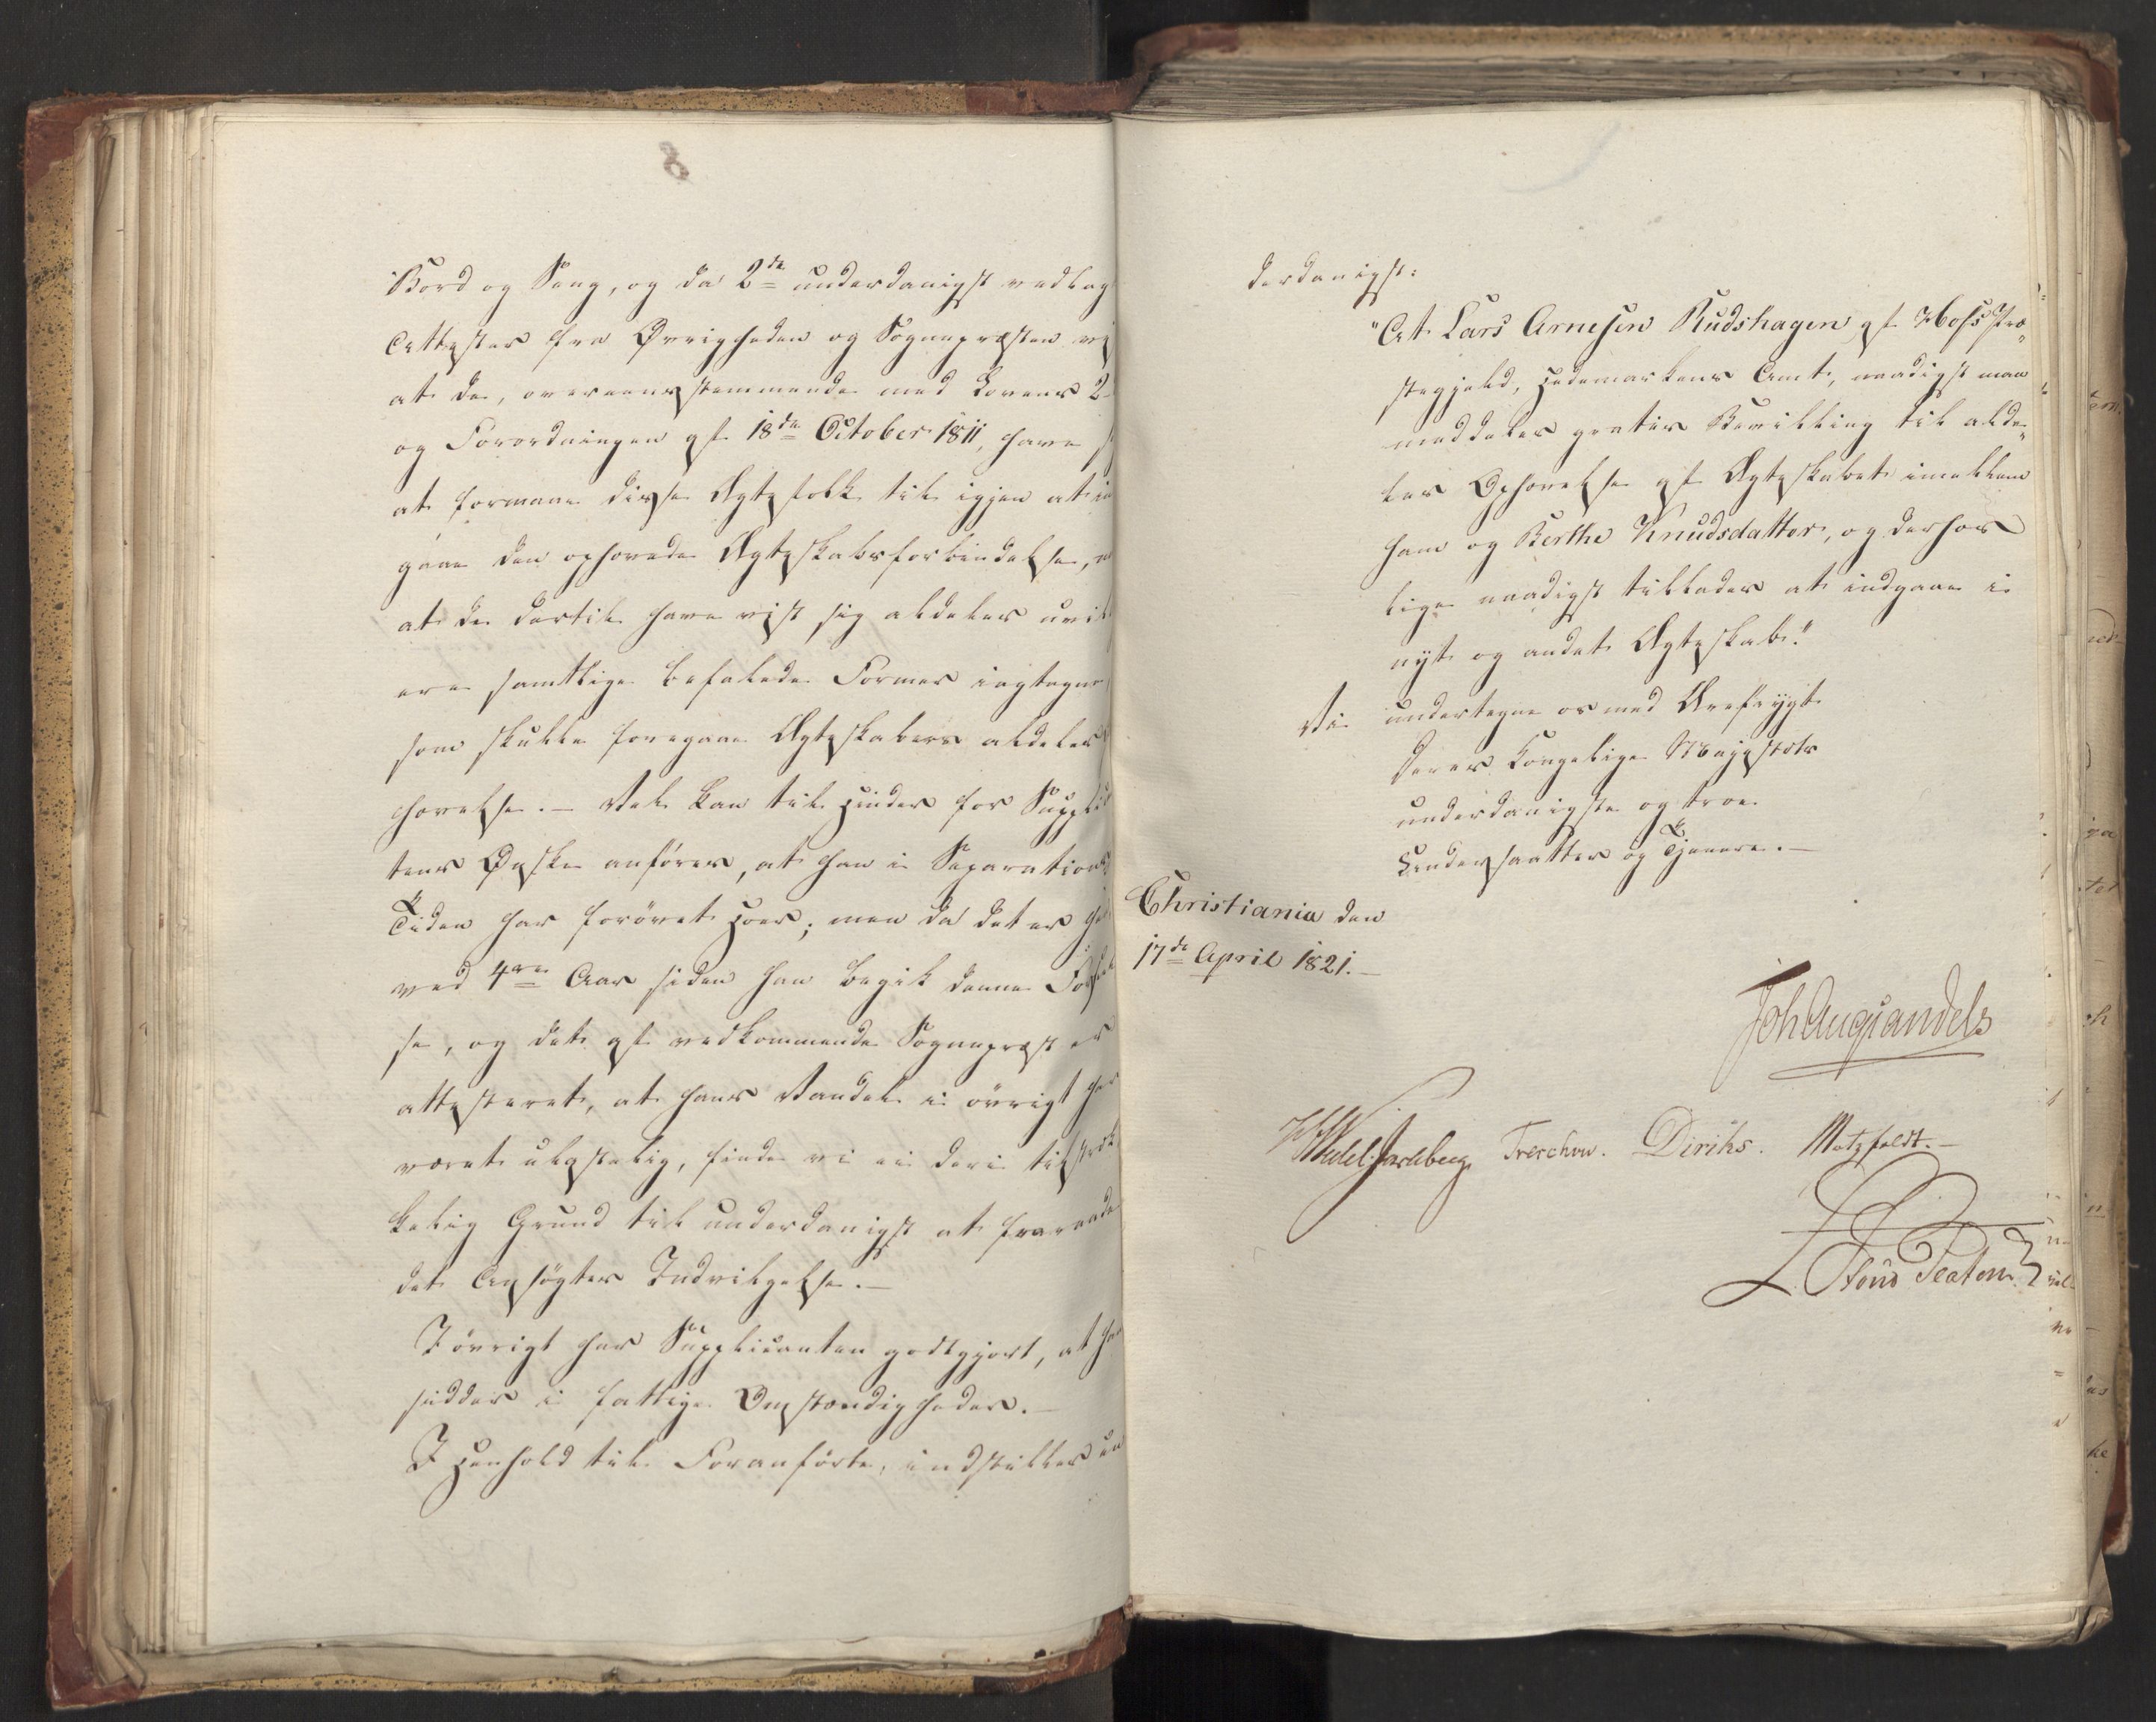 8
Bord og Seng, og da 2de underdanigst vedlag
Attester fra Øvrigheden og Sognepræsten vi
at de, overeensstemmende med Lovens 2-
og Forordningen af 18de October 1811, have
at formane disse Ægtefolk til igjen at in
gaae den ophævede Ægteskabsforbindelse,
at de dertil have vist sig aldeles uvil
ere samtlige befalede Former iagttagne
som skulle foregaae Ægteskabers aldeles
hævelse. – Vel kan til Hinder for Supplik
tens Ønske anføres, at han i Separations
Tiden har forøvet Hoer; men da det er
ved 4re Aar siden han begik denne Forseel
se, og det af vedkommende Sognepræst er
attesteret, at hans Vandel i øvrigt har
været ulastelig, finde vi ei deri tilstræk
kelig Grund til underdanigst at fraraade
det Ansøgtes Indvilgelse. –
I øvrigt har Supplicanten godtgjort, at han
sidder i fattige Omstændigheder. –
I Henhold til Foranførte, indstilles un
derdanigst:
"At Lars Arnesen Rudshagen af Præ-
stegjeld, Hedemarkens Amt, naadigst maae
meddeles gratis Bevilling til alde-
les Ophævelse af Ægteskabet imellem
ham og Berthe Knudsdatter, og derhos
lige naadigst tillades at indgaae i
nyt og andet Ægteskab."
Vi undertegne os med Ærefrygt
Deres Kongelige Majestæts
underdanigste og troe
Undersaatter og Tjenere. –
Christiania den
17de April 1821. –
Joh Aug Sandels
Wedel Jarlsberg Treschow. Diriks. Motzfeldt. –